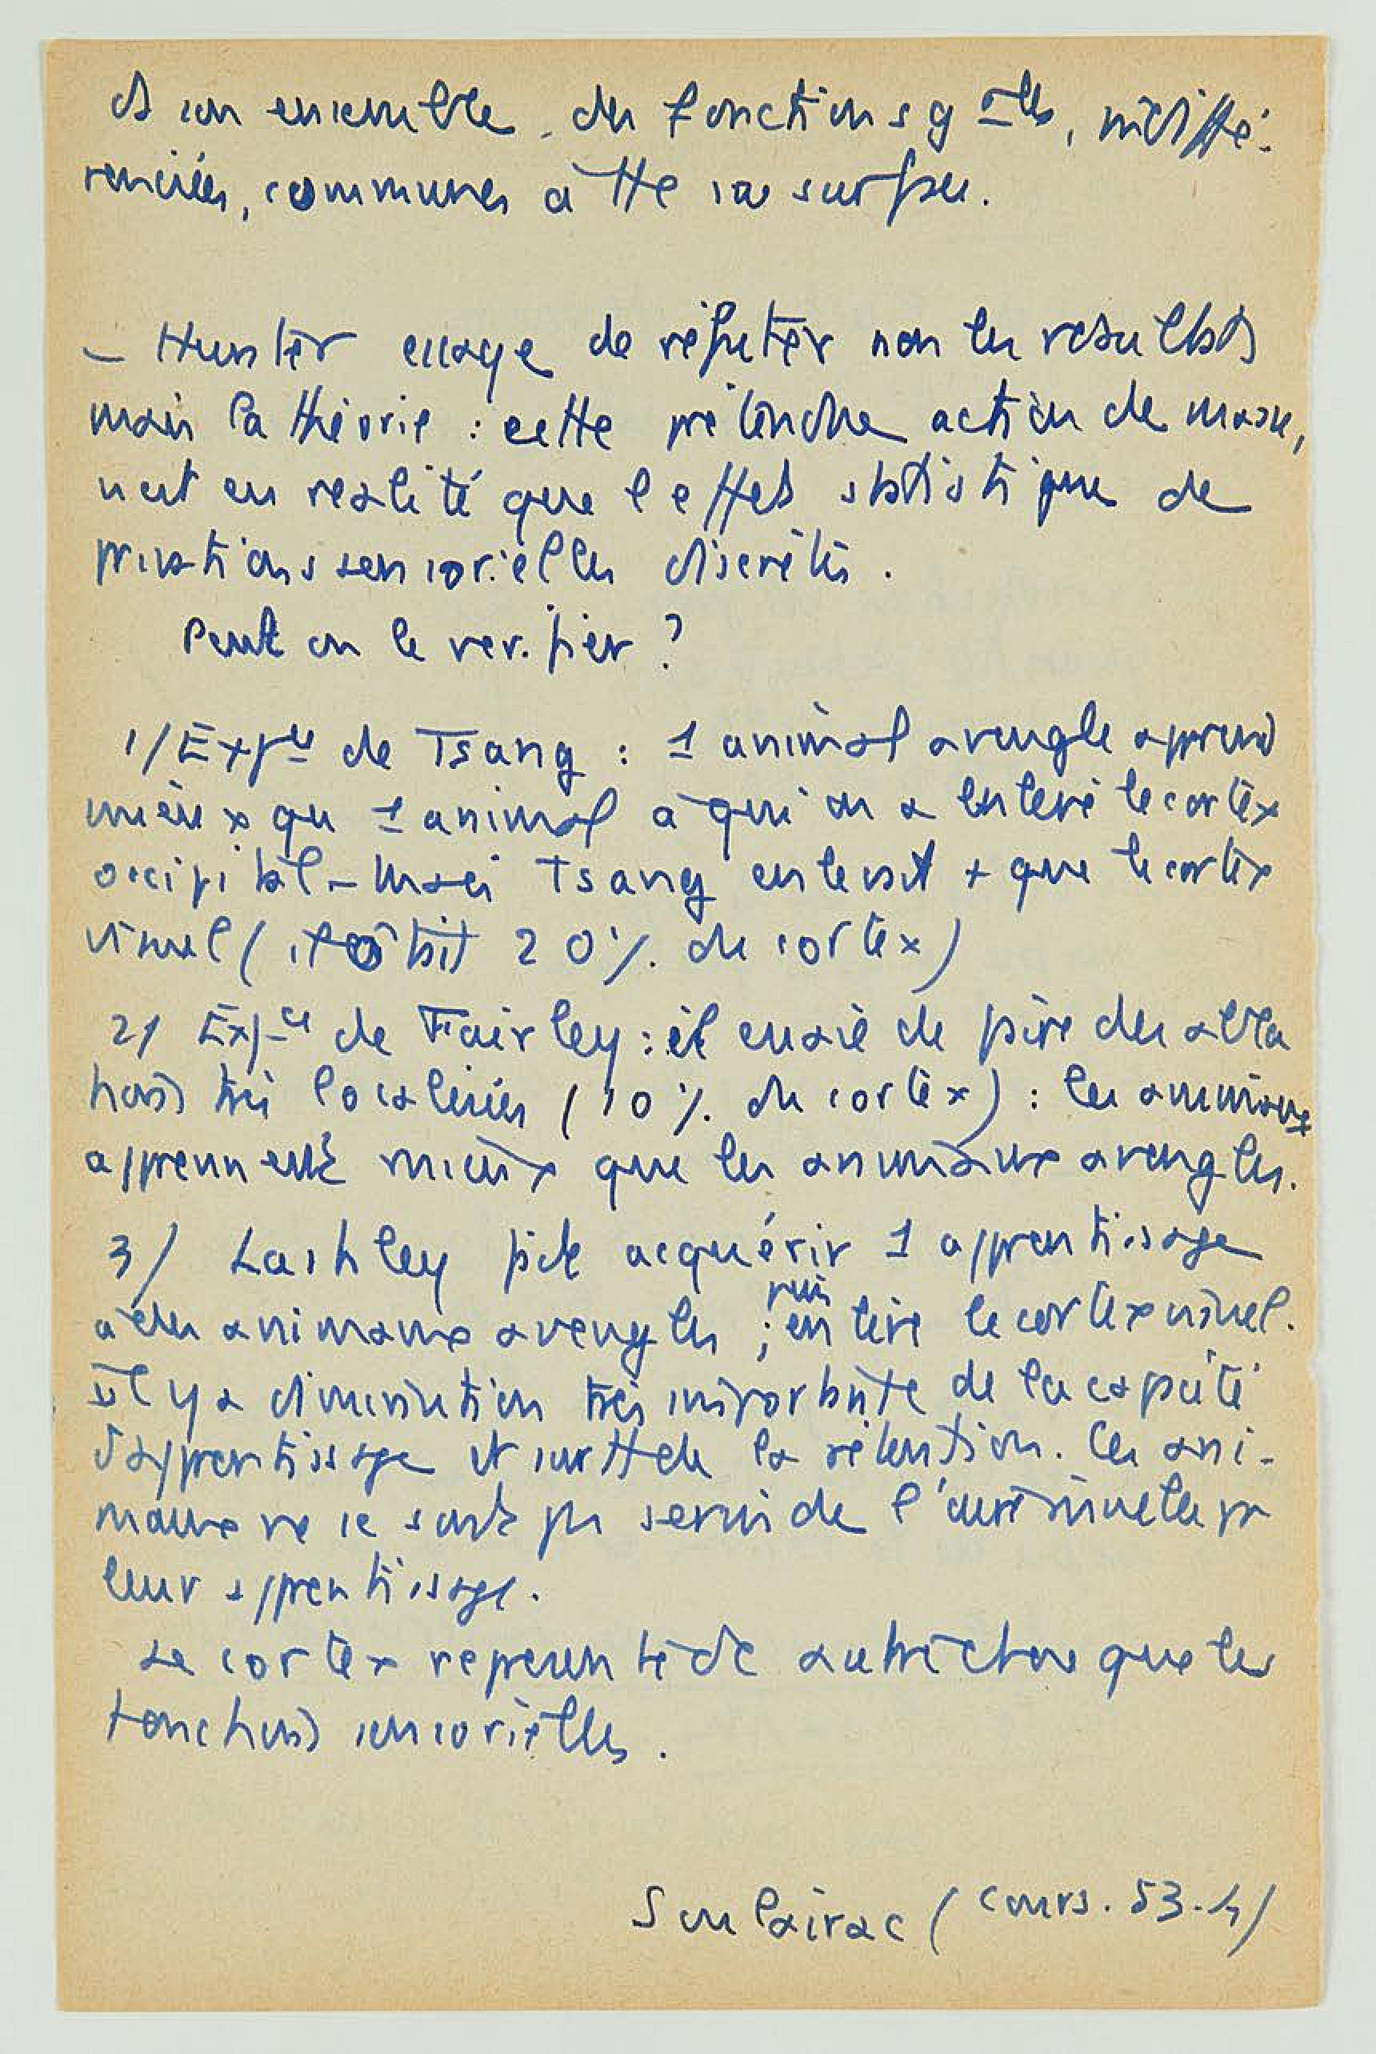 et un ensemble de fonctions gales, indiffé-
renciées, communes à tte sa surface.
– Hunter essaye de réfuter non les résultats
mais la théorie : cette prétendue action de masse,
n'est en réalité que l'effet statistique de
privations sensorielles discrètes.
Peut on le vérifier ?
1/ Expce de Tsang : 1 animal aveugle apprend
mieux qu 1 animal à qui on a enlevé le cortex
occipital – Mais Tsang enlevait + que le cortex
visuel ( il ôtait 20 % du cortex)
2/ Expce de Fairley : il essaie de faire des abla
tions très localisées ( 10 % du cortex) : les animaux
apprennent mieux que les animaux aveugles.
3/ Lashley fait acquérir 1 apprentissage
à des animaux aveugles ; puis enlève le cortex visuel.
Il y a diminution très importante de la capacité
d'apprentissage et surtt de la rétention. Ces ani-
maux ne se sont pas servis de l'aire visuelle pr
leur apprentissage.
Le cortex représente dc autre chose que les
fonctions sensorielles.
Soulairac ( cours. 53-4)